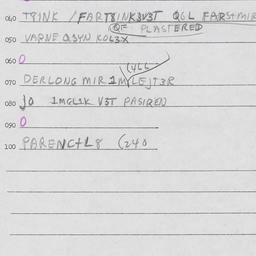 060 T8INK / FARTSINK3V3T Q6L FARSTMIR
QF PLASTERED
050 VARNE QSYN KOL3X
060 O
(4LL
070 DERLONG MIR 1M LEJT3R
080 JO 1MGL1K V3T PASIRED
090 O
100 PARENCTL8 (240